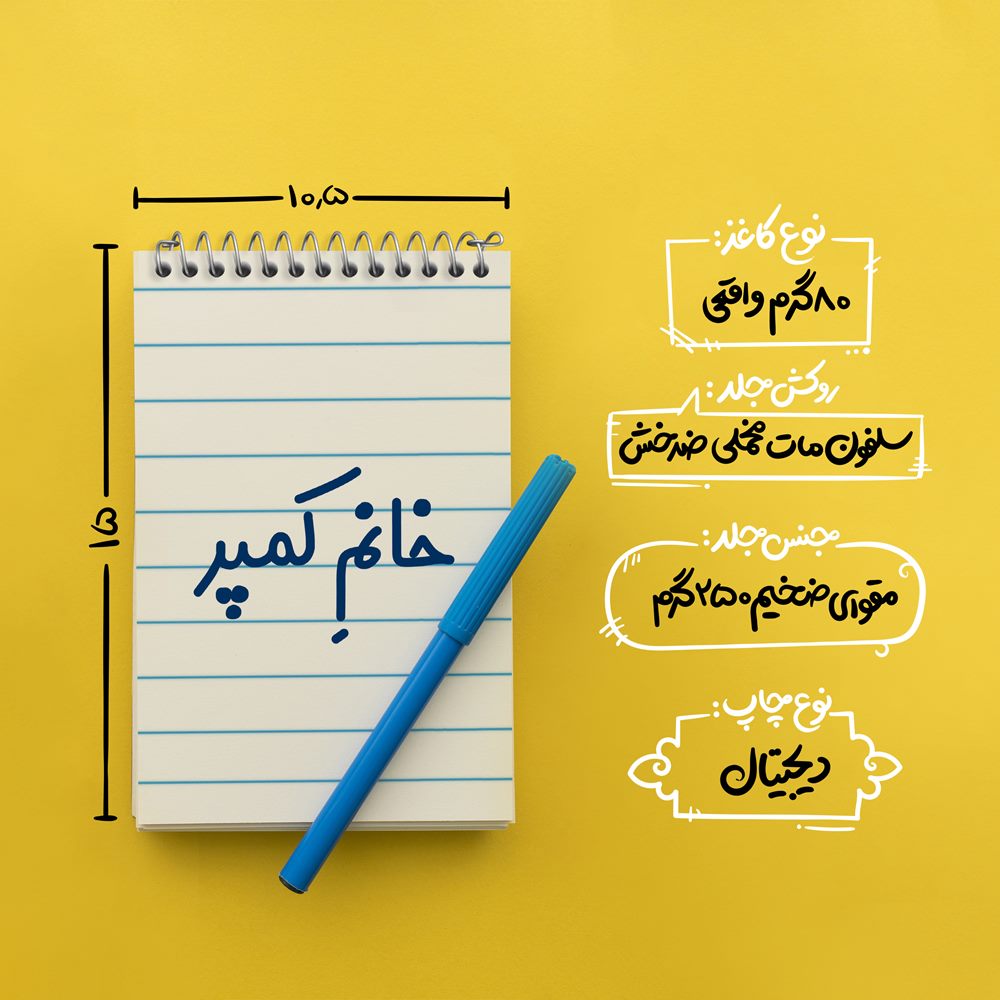 ۱۰٫۵
۱۵
خانمِ کَمپر
نوع کاغذ:
۸۰ گرم واقعی
روکش جلد:
سلفون مات مخملی ضدخش
جنس جلد:
مقوای ضخیم ۲۵۰ گرم
نوع چاپ:
دیجیتال